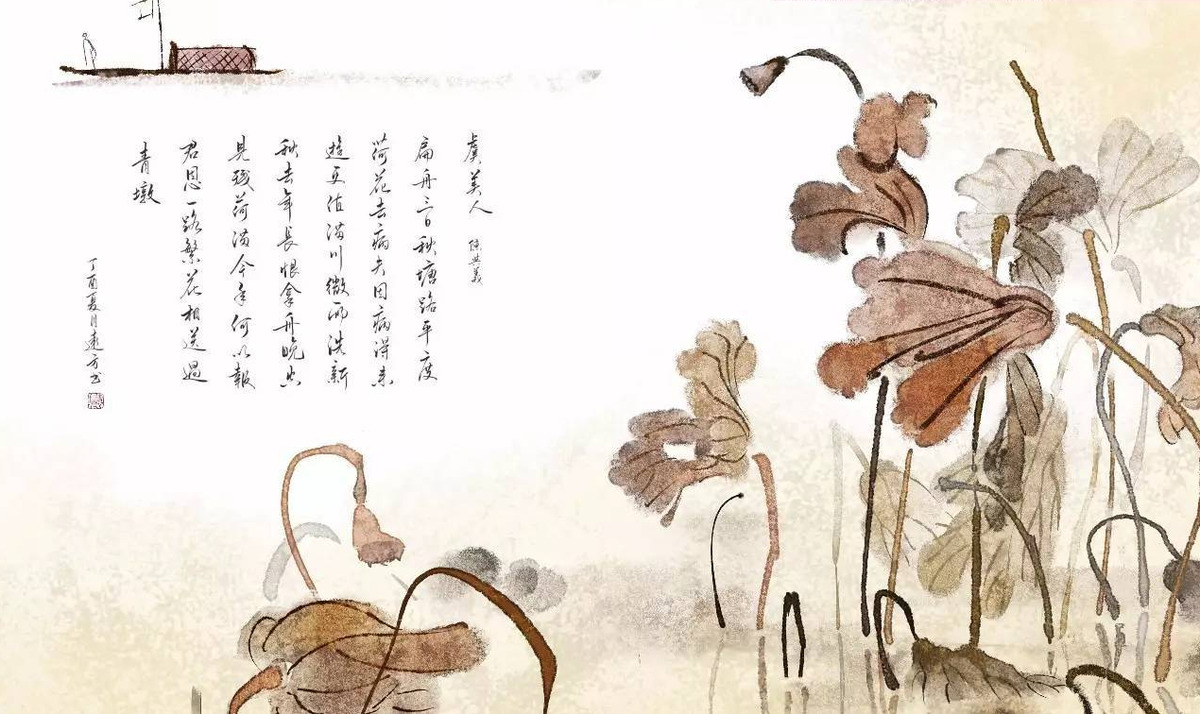 虞美人 陳與義
扁舟三日秋塘路平度
荷花去病夫因病得来
遊更值滿川微雨洗新
秋去年長恨拿舟晚空
見残荷滿今年何以報
君恩一路繁花相送過
青墩
丁酉夏月遠方书